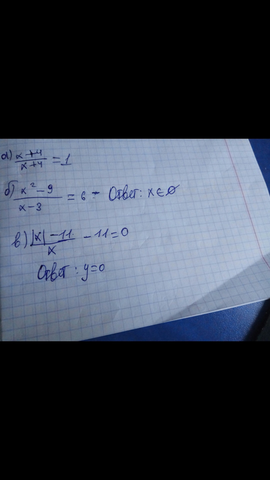 а) x+4/x+4 = 1
б) x²-9/x-3 = 6 - Ответ: x∈∅
в) |x|-11/x - 11=0
Ответ: y=0